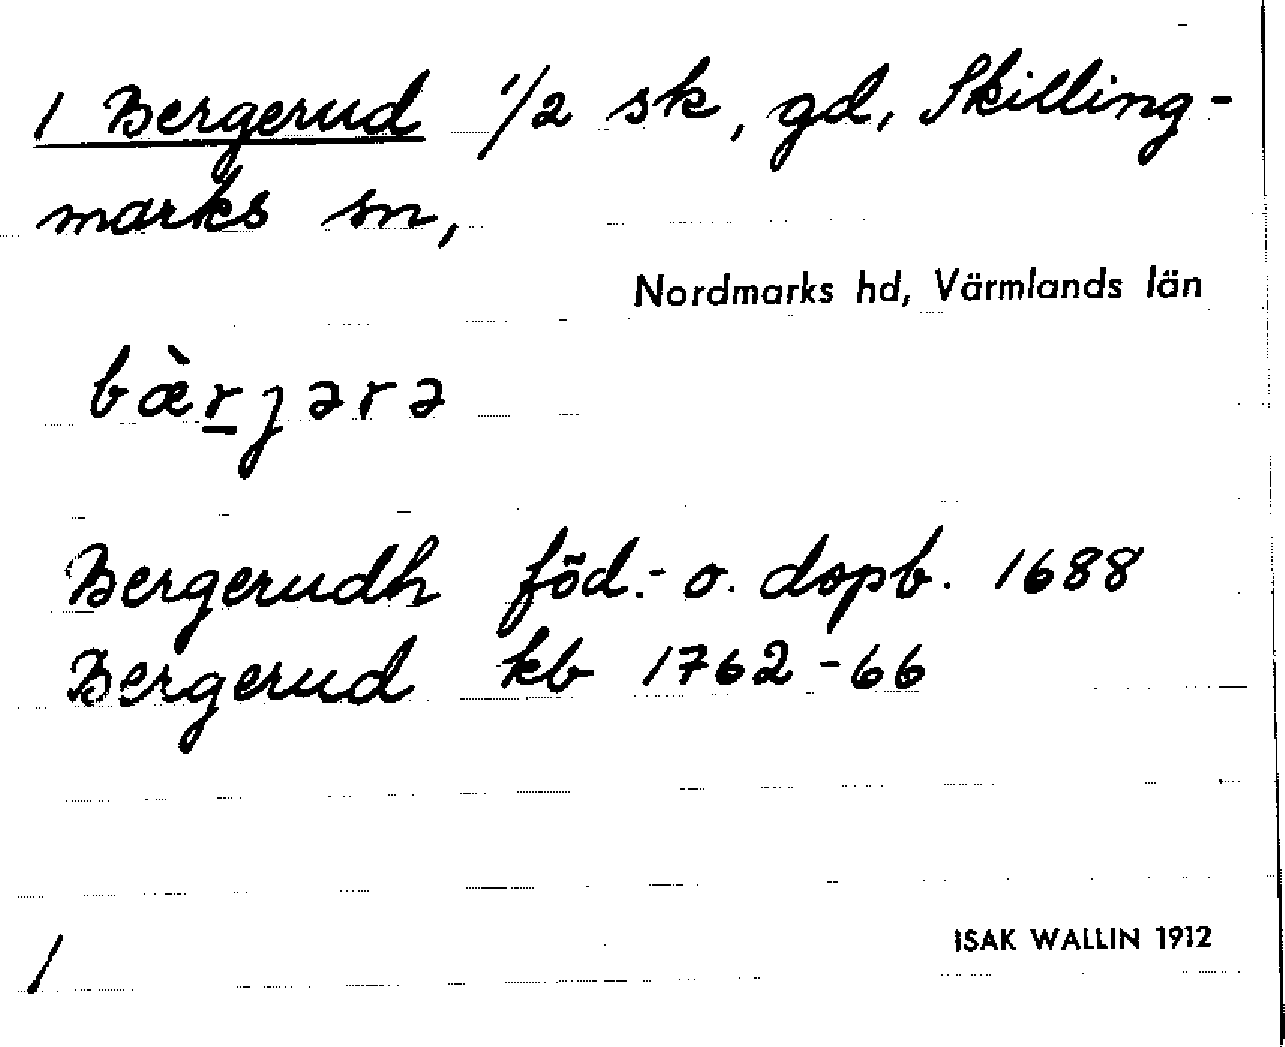 1 Bergerud 1/2 sk, gd, Skilling-
marks sn,
Nordmarks hd, Värmlands län
bæ̀r̲jərə
Bergerudh föd.- o. dopb. 1688
Bergerud kb 1762-66
1
ISAK WALLIN 1912